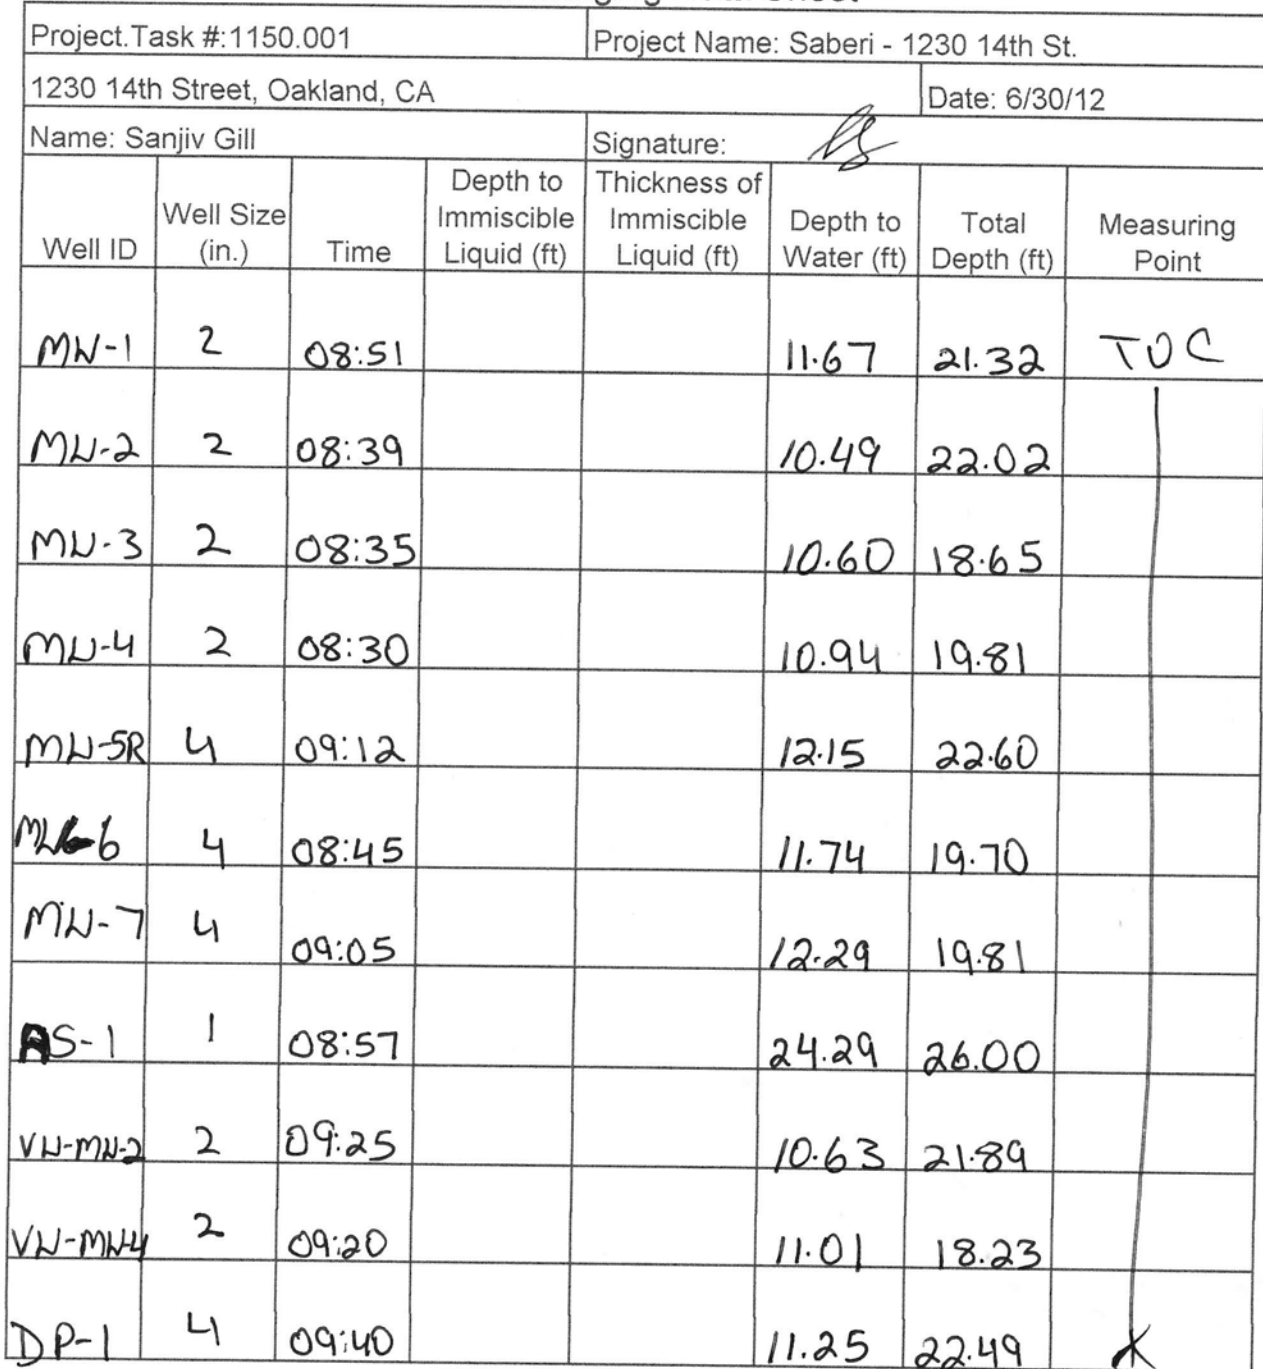 Project.Task #:1150.001 Project Name: Saberi - 1230 14th St.
1230 14th Street, Oakland, CA Date: 6/30/12
Name: Sanjiv Gill Signature:
Well ID Well Size (in.) Time Depth to Immiscible Liquid (ft) Thickness of Immiscible Liquid (ft) Depth to Water (ft) Total Depth (ft) Measuring Point
MW-1 2 08:51 11.67 21.32 TOC
MW-2 2 08:39 10.49 22.02
MW-3 2 08:35 10.60 18.65
MW-4 2 08:30 10.94 19.81
MW-5R 4 09:12 12.15 22.60
MW-6 4 08:45 11.74 19.70
MW-7 4 09:05 12.29 19.81
AS-1 1 08:57 24.29 26.00
VW-MW-2 2 09:25 10.63 21.89
VW-MW4 2 09:20 11.01 18.23
DP-1 4 09:40 11.25 22.49